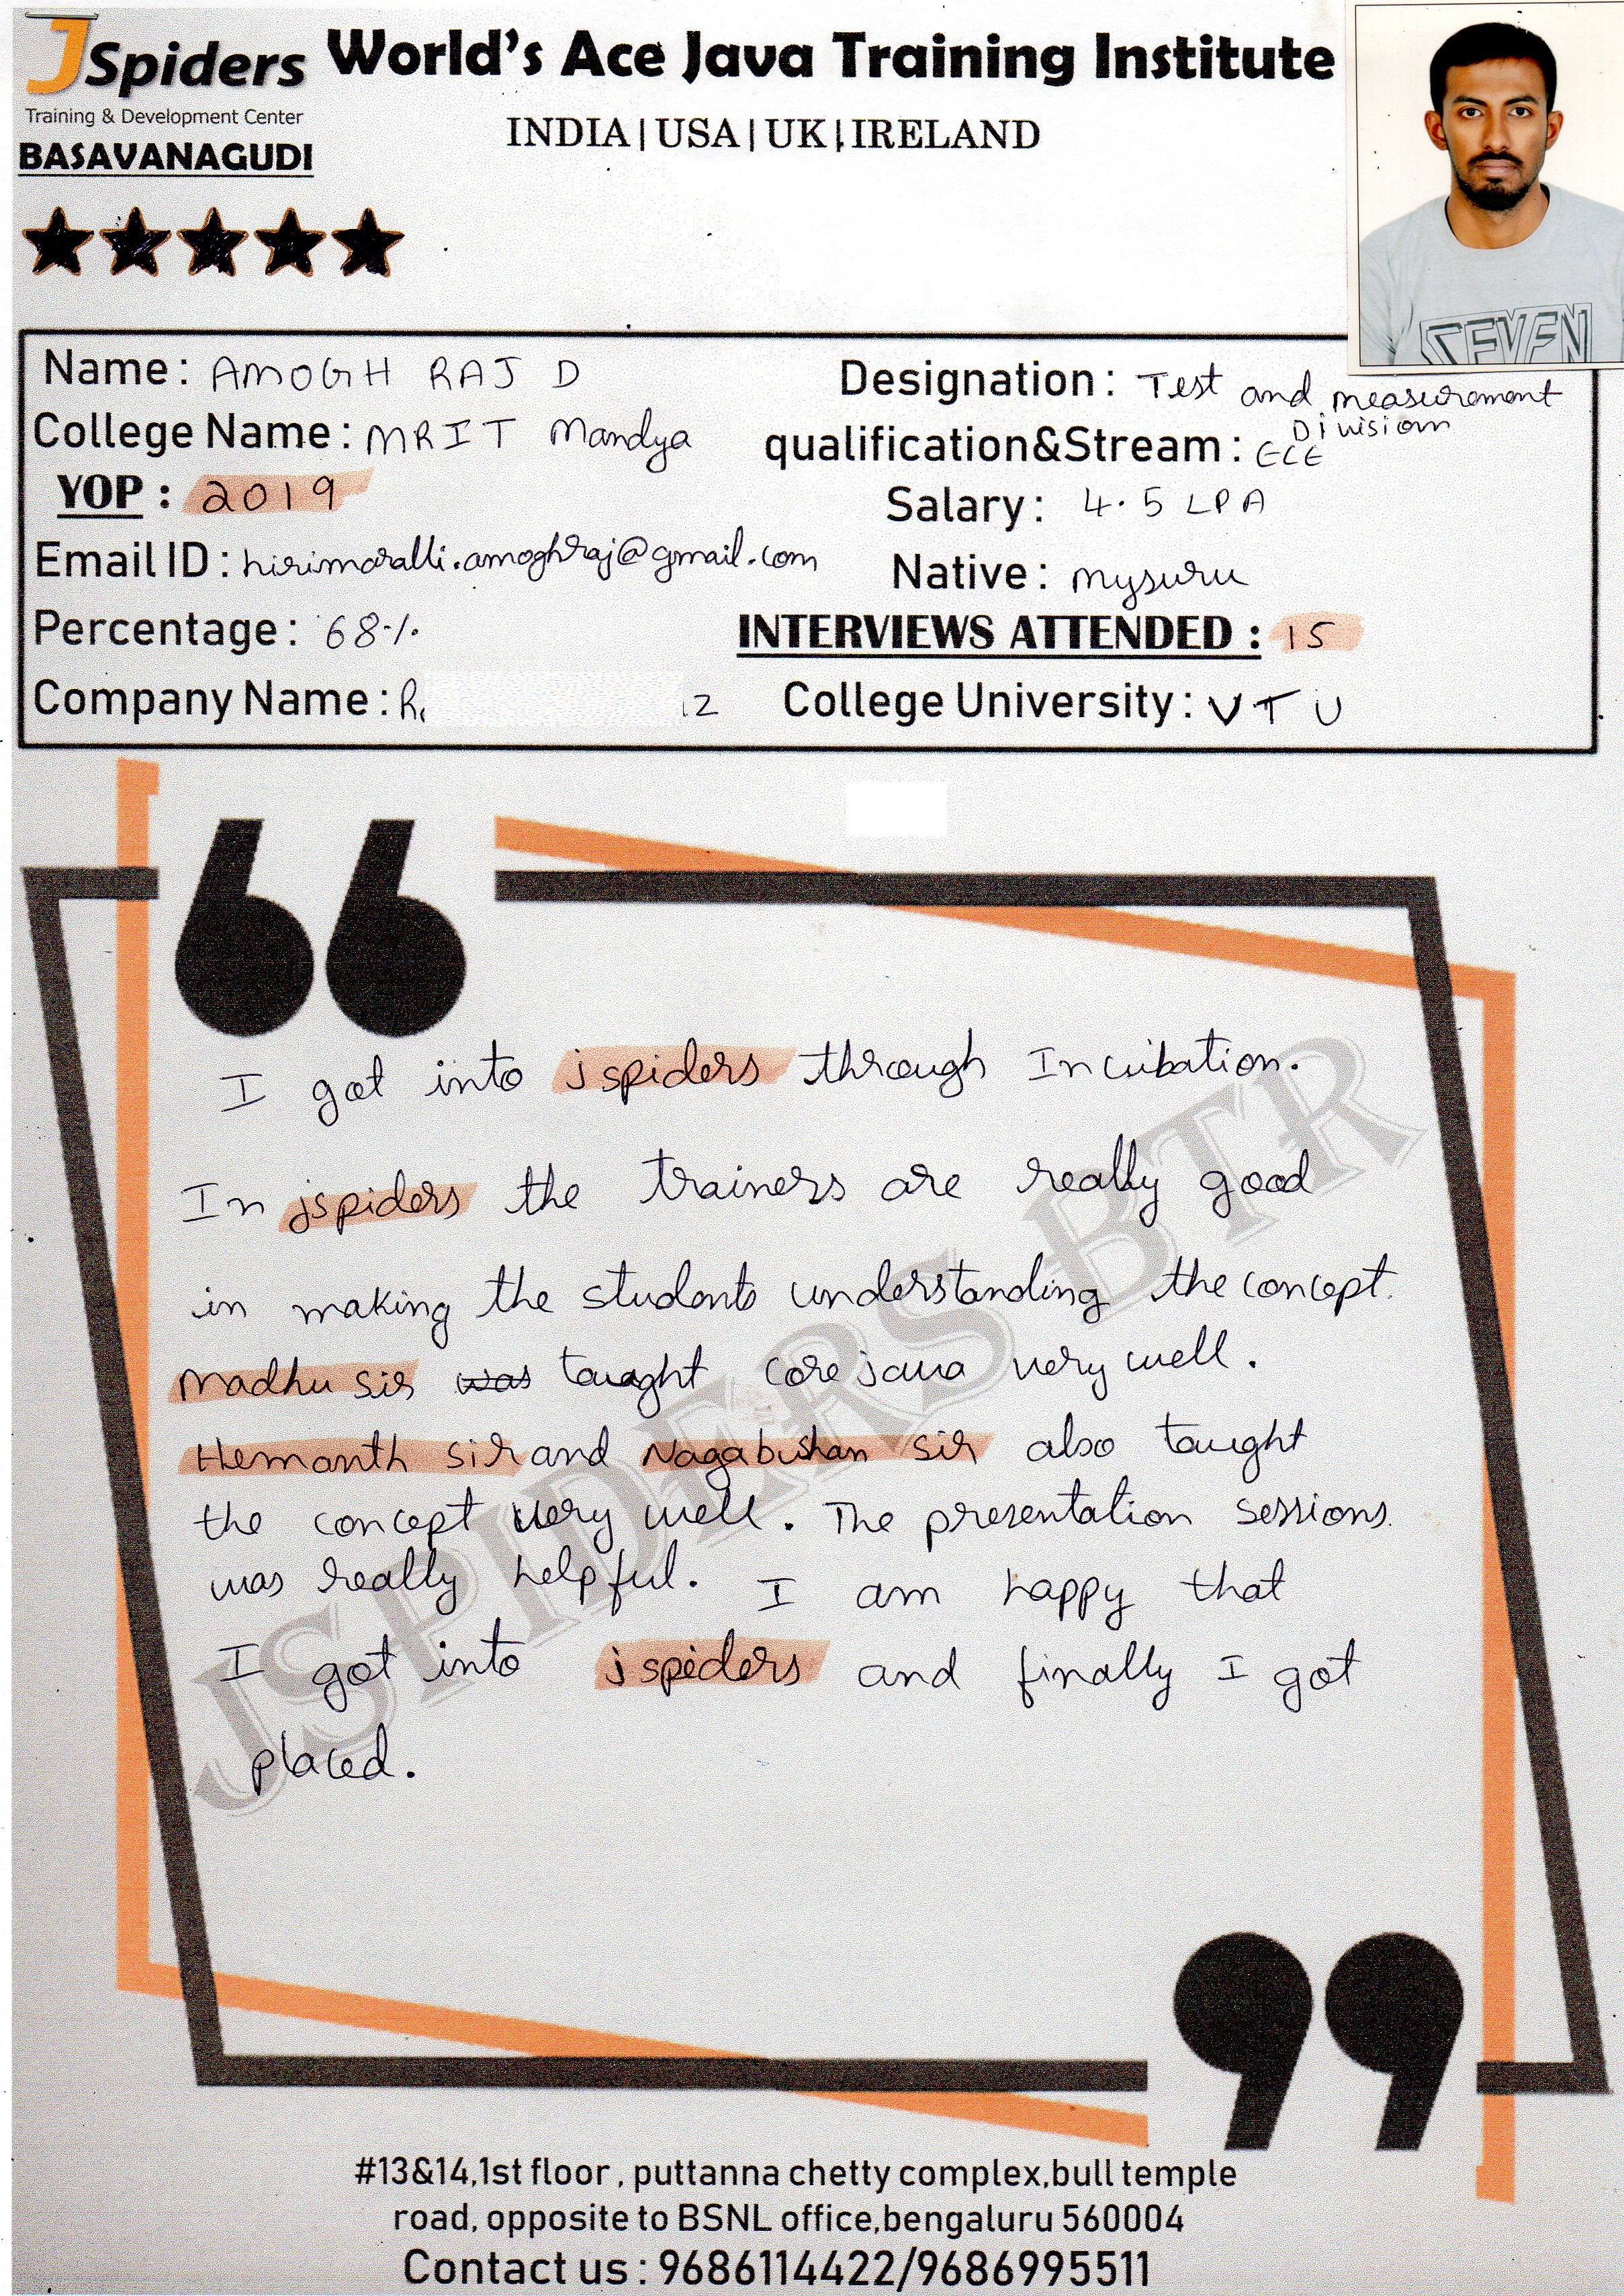 JSpiders World's Ace Java Training Institute
Training & Development Center
INDIA | USA | UK | IRELAND
BASAVANAGUDI
SEVEN
Name : AMOGH RAJ D
Designation : Test and measurement Division
College Name : MRIT Mandya
qualification&Stream : ECE
YOP : 2019
Salary : 4.5 LPA
Email ID : hirimaralli.amoghraj@gmail.com
Native : mysuru
Percentage : 68%
INTERVIEWS ATTENDED : 15
Company Name :
College University : VTU
I got into jspiders through Incubation.
In jspiders the trainers are really good
in making the students understanding the concept.
Madhu sir was taught core java very well.
Hemanth sir and Nagabushan sir also taught
the concept very well. The presentation sessions.
was really helpful. I am happy that
I got into jspiders and finally I got
placed.
JSPIDERS BTR
#13&14,1st floor , puttanna chetty complex,bull temple
road, opposite to BSNL office,bengaluru 560004
Contact us : 9686114422/9686995511